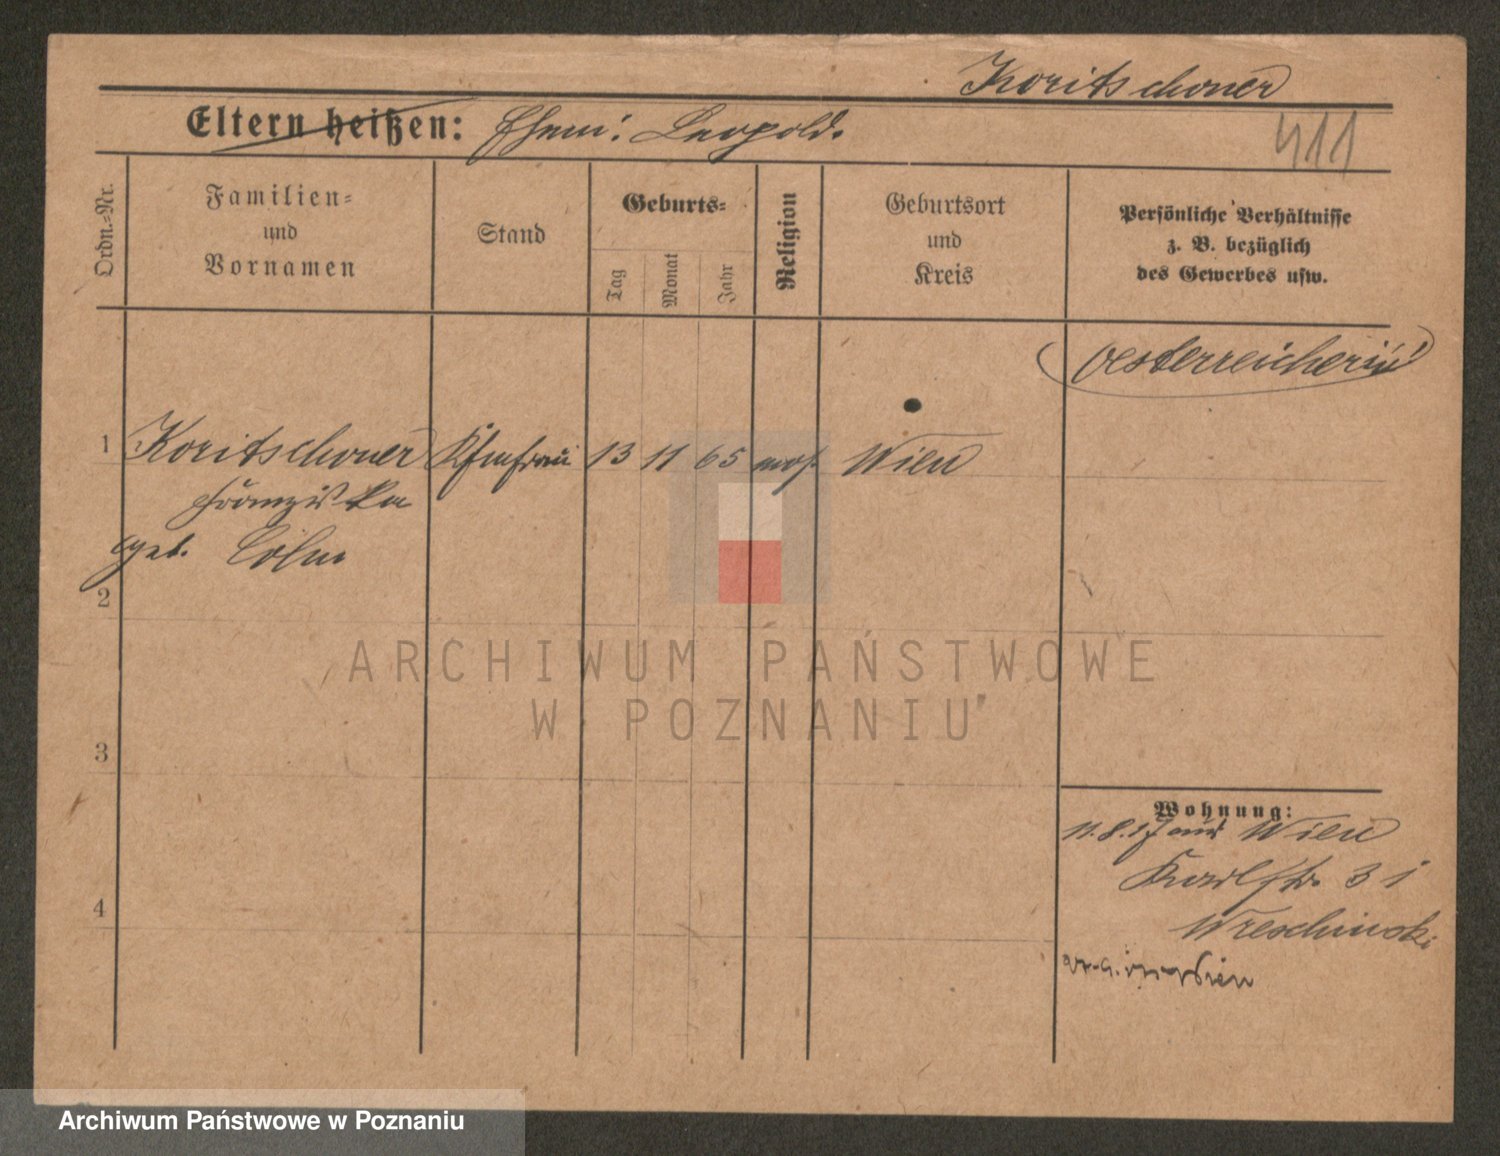 Koritschoner
Eltern heißen: Ehem: Leopold.
411
Ordn.-Nr.
Familien-
und
Vornamen
Stand
Geburts-
Tag
Monat
Jahr
Religion
Geburtsort
und
Kreis
Persönliche Verhältnisse
z. B. bezüglich
des Gewerbes usw.
Oesterreicherin
1 Koritschoner Kfmfrau 13 11 65 mos. Wien
Franziska
geb.
2
3
4
Wohnung:
11.8.17 aus Wien
Karlstr. 3 I
Wreschinski
Wien
ARCHIWUM PAŃSTWOWE
W POZNANIU
Archiwum Państwowe w Poznaniu